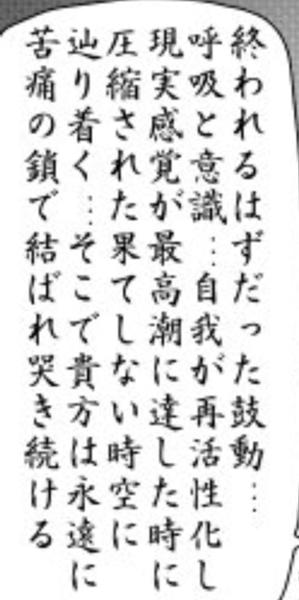 終われるはずだった鼓動…
呼吸と意識…自我が再活性化し
現実感覚が最高潮に達した時に
圧縮された果てしない時空に
辿り着く…そこで貴方は永遠に
苦痛の鎖で結ばれ哭き続ける